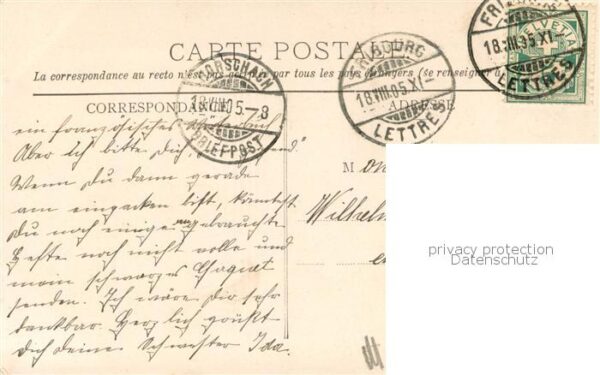 CARTE POSTALE
La correspondance au recto n'est pas acceptée par tous les pays étrangers (se renseigner à la
CORRESPONDANCE
ADRESSE
RORSCHACH
18.VIII.05.-8
BRIEFPOST
FRIBOURG
18.VIII.05.XI
LETTRES
FRIBOURG
18.VIII.05.XI
LETTRES
HELVETIA
ein französisches Wörterbuch
Aber ich bitte dich,
Wenn Du dann gerade
am einpacken bist, könntest
Du noch einige gebrauchte
Hefte noch nicht volle und
mein schwarzes Jaquet
senden. Ich wäre Dir sehr
dankbar. Herzlich grüßt
Dich Deine Schwester Ida.
Mon
Wilhelm
privacy protection
Datenschutz